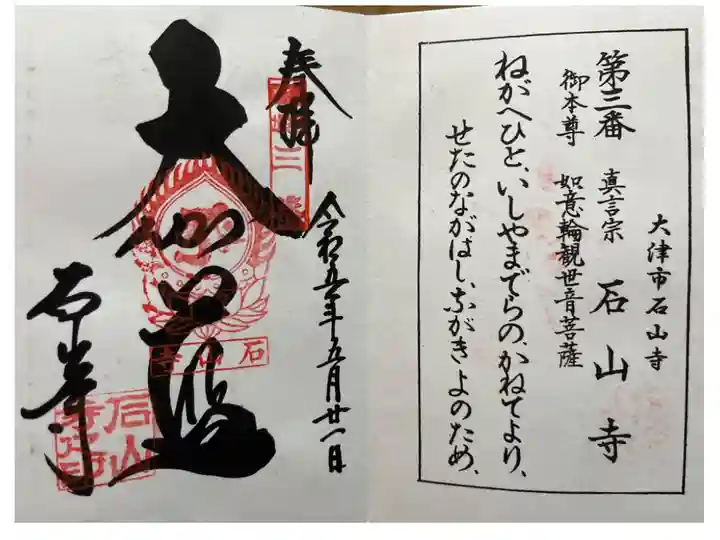 大津市石山寺
第三番 真言宗 石山寺
御本尊 如意輪観世音菩薩
ねがへひと、いしやまでらの、かねてより、
せたのながはし、ながきよのため、
奉拝
令和五年五月廿一日
大伽藍
石山寺
石山寺